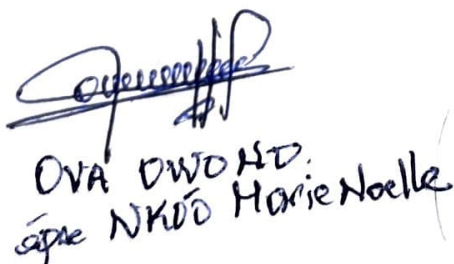 OVA OWONO.
épse NKOO Marie Noelle